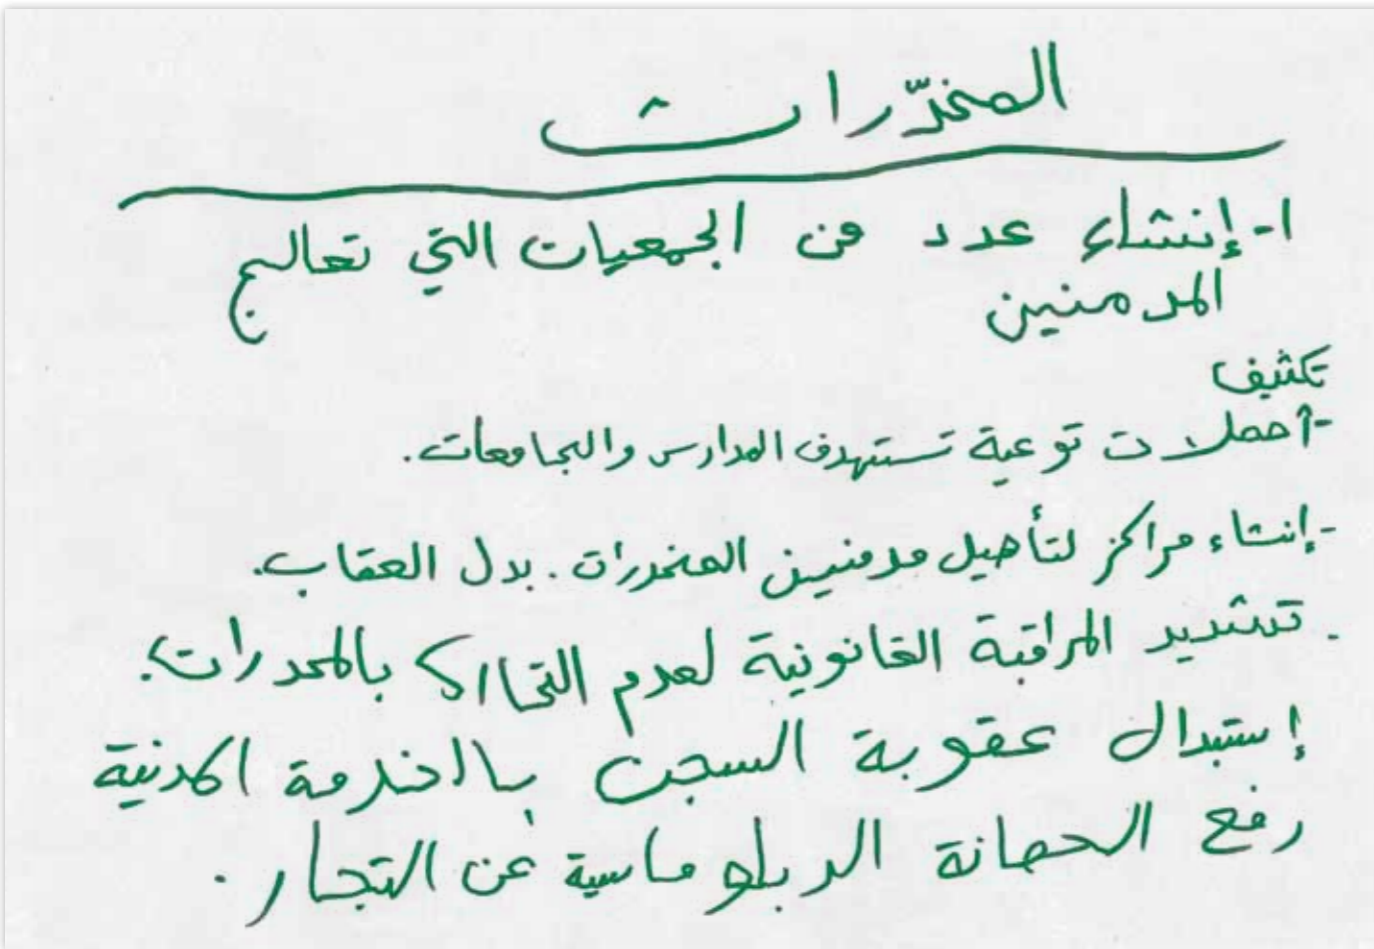 المخدّرات
١- إنشاء عدد من الجمعيات التي تعالج
المدمنين
تكثيف
- حملات توعية تستهدف المدارس والجامعات.
- إنشاء مراكز لتأهيل مدمنين المخدرات. بدل العقاب.
- تشديد المراقبة القانونية لعدم بالمخدرات.
إستبدال عقوبة السجن بالخدمة المدنية
رفع الحصانة الدبلوماسية عن التجار.